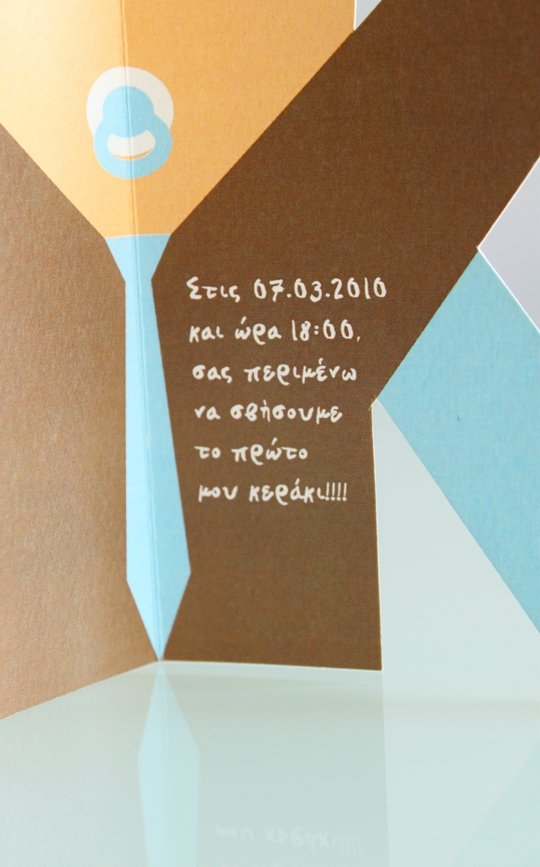 Στις 07.03.2010
και ώρα 18:00,
σας περιμένω
να σβήσουμε
το πρώτο
μου κεράκι!!!!